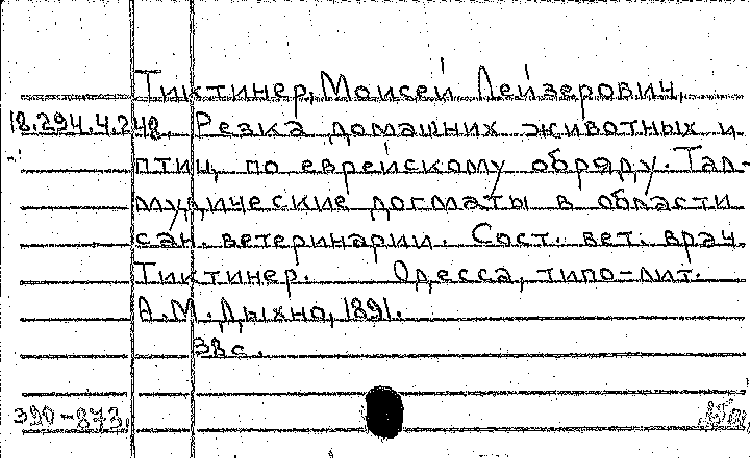 Тиктинер, Моисей Лейзерович,
18.294.4.248. Резка домашних животных и
птиц, по еврейскому обряду. Тал-
мудические догматы в области
сан. ветеринарии. Сост.. вет. врач
Тиктинер. Одесса, типо-лит.
А.М. Дыхно, 1891.
38 с.
390-873.